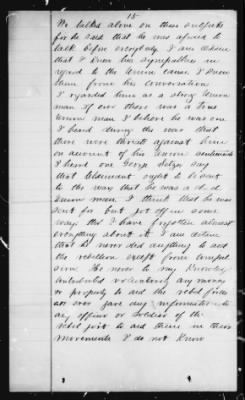 15
We talked alone on these subjects
for he said that he was afraid to
talk before everybody. I am certain
that I knew his sympathies in
regard to the Union cause I knew
them from his conversation
I regarded him as a strong Union
man if ever there was a true
Union man I believe he was one
I heard during the war that
there were threats against him
on account of his Union sentiments
I heard one George say
that Claimant ought to be sent
to the way that he was a d—d
Union man. I think that he was
sent for but got off in some
way tho I have forgotten almost
everything about it. I am certain
that he never did anything to aid
the rebellion except from compul
sion. He never to my knowledge
contributed voluntarily any money
or property to aid the rebel forces
nor ever gave any information to
any officer or soldier of the
rebel govt to aid them in their
movements I do not know